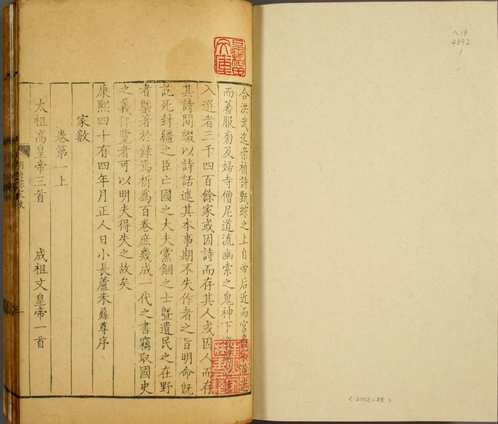 合洪武迄崇禎詩甄綜之上自帝后近而宮壼宗潢遠
而蕃服旁及婦寺僧尼道流幽索之鬼神下
入選者三千四百餘家或因詩而存其人或因人而存
其詩間綴以詩話述其本事期不失作者之旨明命既
訖死封疆之臣亡國之大夫黨錮之士暨遺民之在野
者槩著於錄焉析爲百卷庶幾成一代之書竊取國史
之義俾覽者可以明夫得失之故矣
康熙四十有四年月正人日小長蘆朱彝尊序
家數
卷第一上
太祖高皇帝三首
成祖文皇帝一首
4092